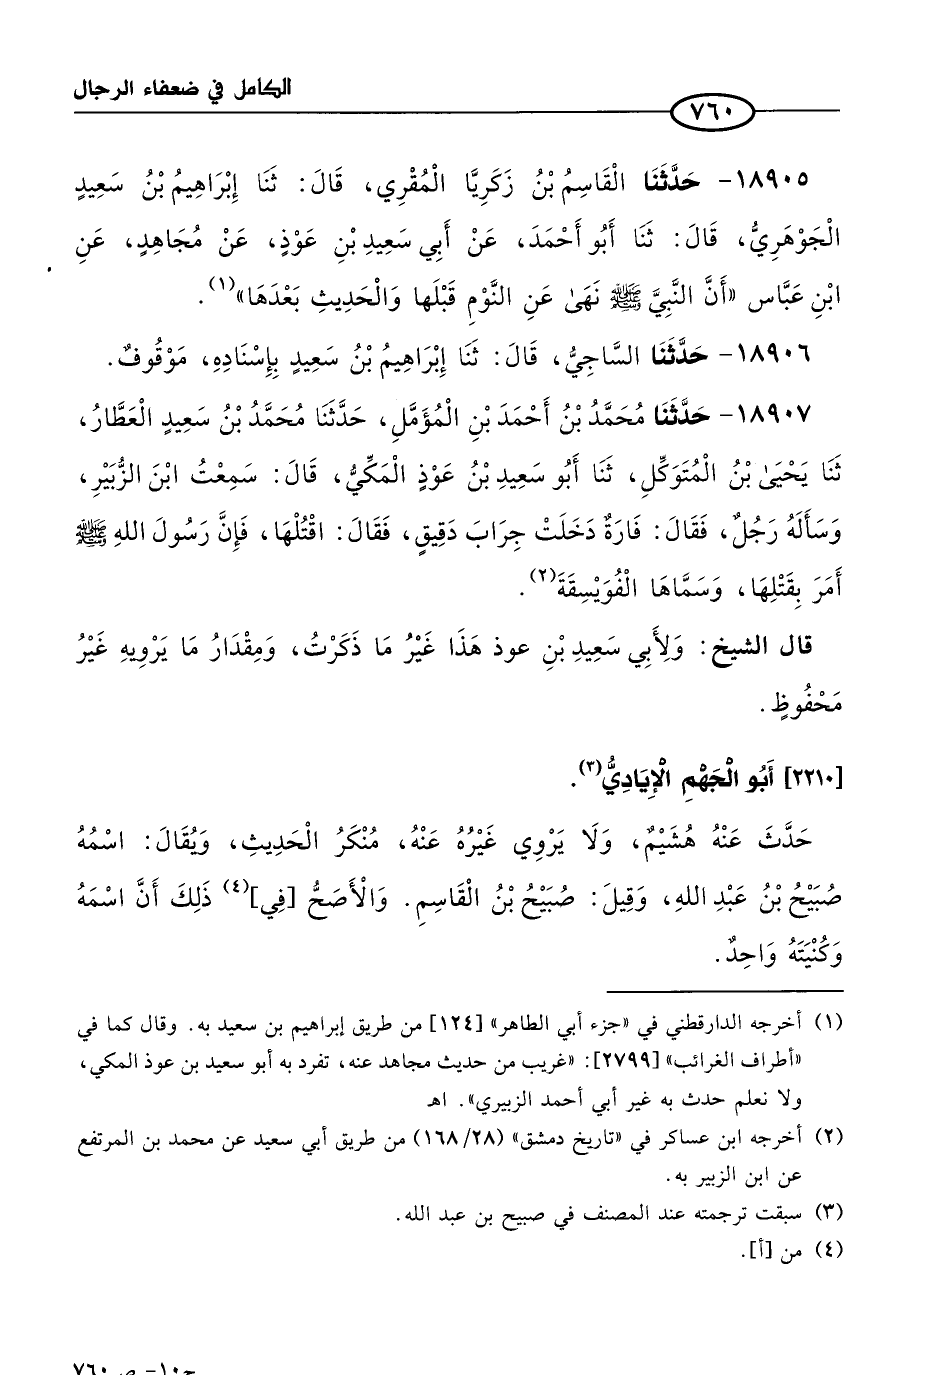 الكامل في ضعفاء الرجال
٧٦٠
١٨٩٠٥- حَدَّثَنَا الْقَاسِمُ بْنُ زَكَرِيَّا الْمُقْرِي، قَالَ: ثَنَا إِبْرَاهِيمُ بْنُ سَعِيدٍ
الْجَوْهَرِيُّ، قَالَ: ثَنَا أَبُو أَحْمَدَ، عَنْ أَبِي سَعِيدِ بْنِ عَوْذٍ، عَنْ مُجَاهِدٍ، عَنِ
ابْنِ عَبَّاس «أَنَّ النَّبِيَّ ﷺ نَهَىٰ عَنِ النَّوْمِ قَبْلَها وَالْحَدِيثِ بَعْدَهَا»(١).
١٨٩٠٦- حَدَّثَنَا السَّاجِيُّ، قَالَ: ثَنَا إِبْرَاهِيمُ بْنُ سَعِيدٍ بِإِسْنَادِهِ، مَوْقُوفٌ.
١٨٩٠٧- حَدَّثَنَا مُحَمَّدُ بْنُ أَحْمَدَ بْنِ الْمُؤَمَّلِ، حَدَّثَنَا مُحَمَّدُ بْنُ سَعِيدٍ الْعَطَّارُ،
ثَنَا يَحْيَىٰ بْنُ الْمُتَوَكِّلِ، ثَنَا أَبُو سَعِيدٍ بْنُ عَوْذٍ الْمَكِّيُّ، قَالَ: سَمِعْتُ ابْنَ الزُّبَيْرِ،
وَسَأَلَهُ رَجُلٌ، فَقَالَ: فَارَةٌ دَخَلَتْ جِرَابَ دَقِيقٍ، فَقَالَ: اقْتُلْهَا، فَإِنَّ رَسُولَ اللهِ ﷺ
أَمَرَ بِقَتْلِهَا، وَسَمَّاهَا الْفُوَيْسِقَةَ(٢).
قال الشيخ: وَلِأَبِي سَعِيدِ بْنِ عوذ هَذَا غَيْرُ مَا ذَكَرْتُ، وَمِقْدَارُ مَا يَرْوِيهِ غَيْرُ
مَحْفُوظٍ.
[٢٢١٠] أَبُو الْجَهْمِ الْإِيَادِيُّ(٣).
حَدَّثَ عَنْهُ هُشَيْمٌ، وَلَا يَرْوِي غَيْرُهُ عَنْهُ، مُنْكَرُ الْحَدِيثِ، وَيُقَالَ: اسْمُهُ
صُبَيْحُ بْنُ عَبْدِ اللهِ، وَقِيلَ: صُبَيْحُ بْنُ الْقَاسِمِ. وَالْأَصَحُّ [فِي](٤) ذَلِكَ أَنَّ اسْمَهُ
وَكُنْيَتَهُ وَاحِدٌ.
(١) أخرجه الدارقطني في «جزء أبي الطاهر» [١٢٤] من طريق إبراهيم بن سعيد به. وقال كما في
«أطراف الغرائب» [٢٧٩٩]: «غريب من حديث مجاهد عنه، تفرد به أبو سعيد بن عوذ المكي،
ولا نعلم حدث به غير أبي أحمد الزبيري». اهـ
(٢) أخرجه ابن عساكر في «تاريخ دمشق» (١٦٨/٢٨) من طريق أبي سعيد عن محمد بن المرتفع
عن ابن الزبير به.
(٣) سبقت ترجمته عند المصنف في صبيح بن عبد الله.
(٤) من [أ].
ج١٠- ص٧٦٠